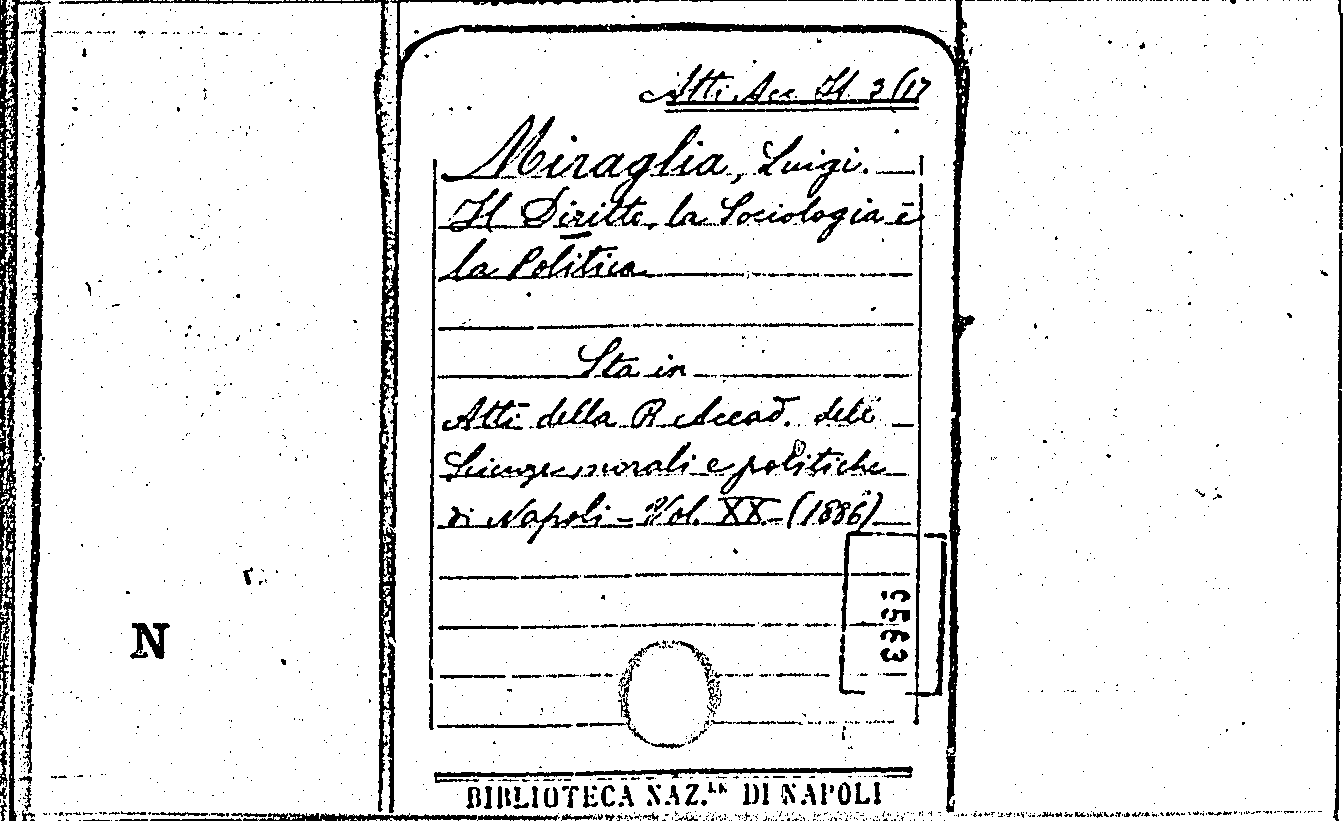 Atti Acc It 3/17
Miraglia, Luigi.
Il Diritto, la Sociologia e
la Politica
Sta in
Atti della R Accad. delle
Scienze morali e politiche
di Napoli - Vol. XX - (1886)
9563
N
BIBLIOTECA NAZ.LE DI NAPOLI